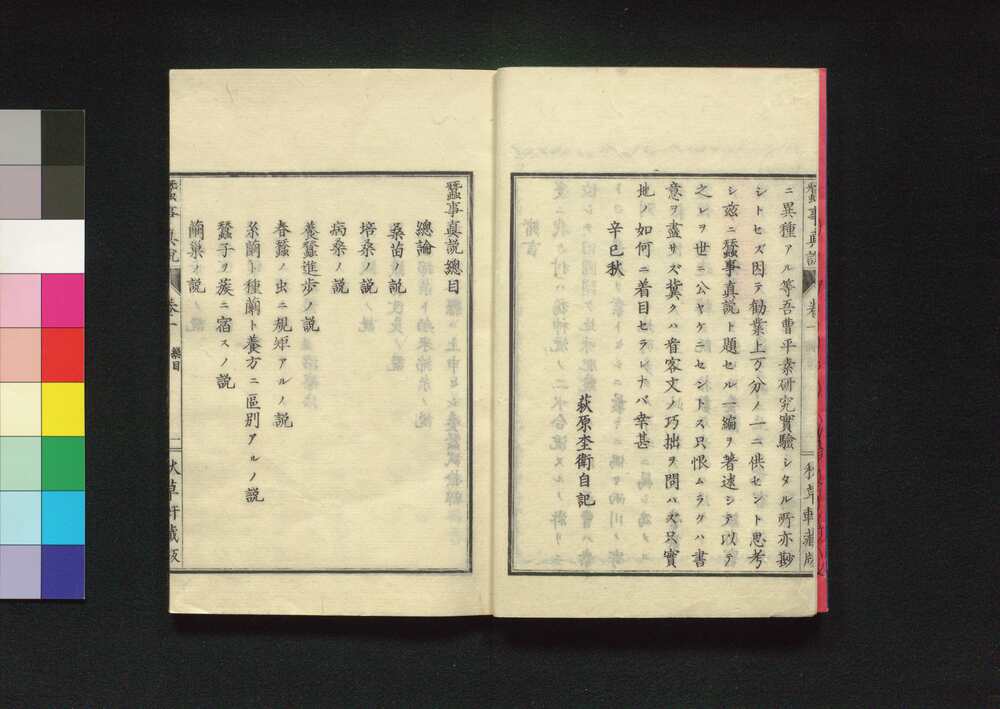 蚕事真説 卷一
秋草軒蔵版
ニ異種アル等吾曹平素研究實驗シタル所亦尠
シトセズ因テ勧業上万分ノ一ニ供セント思考
シ茲ニ蚕事真説ト題セル一編ヲ著述シテ以テ
之レヲ世ニ公ヤケニセントス只恨ムラクハ書
意ヲ盡サズ冀クハ看客文ノ巧拙ヲ問ハズ只實
地ノ如何ニ着目セラレナバ幸甚
辛巳秋
荻原杢衛自記
蚕事真説總目
總論
桑苗ノ説
培桑ノ説
病桑ノ説
養蚕進歩ノ説
春蚕ノ虫ニ規矩アルノ説
糸繭ト種繭ト養方ニ區別アルノ説
蚕子ヲ蔟ニ宿スノ説
繭巣ノ説
蚕事真説 卷一 總目 一
秋草軒蔵版